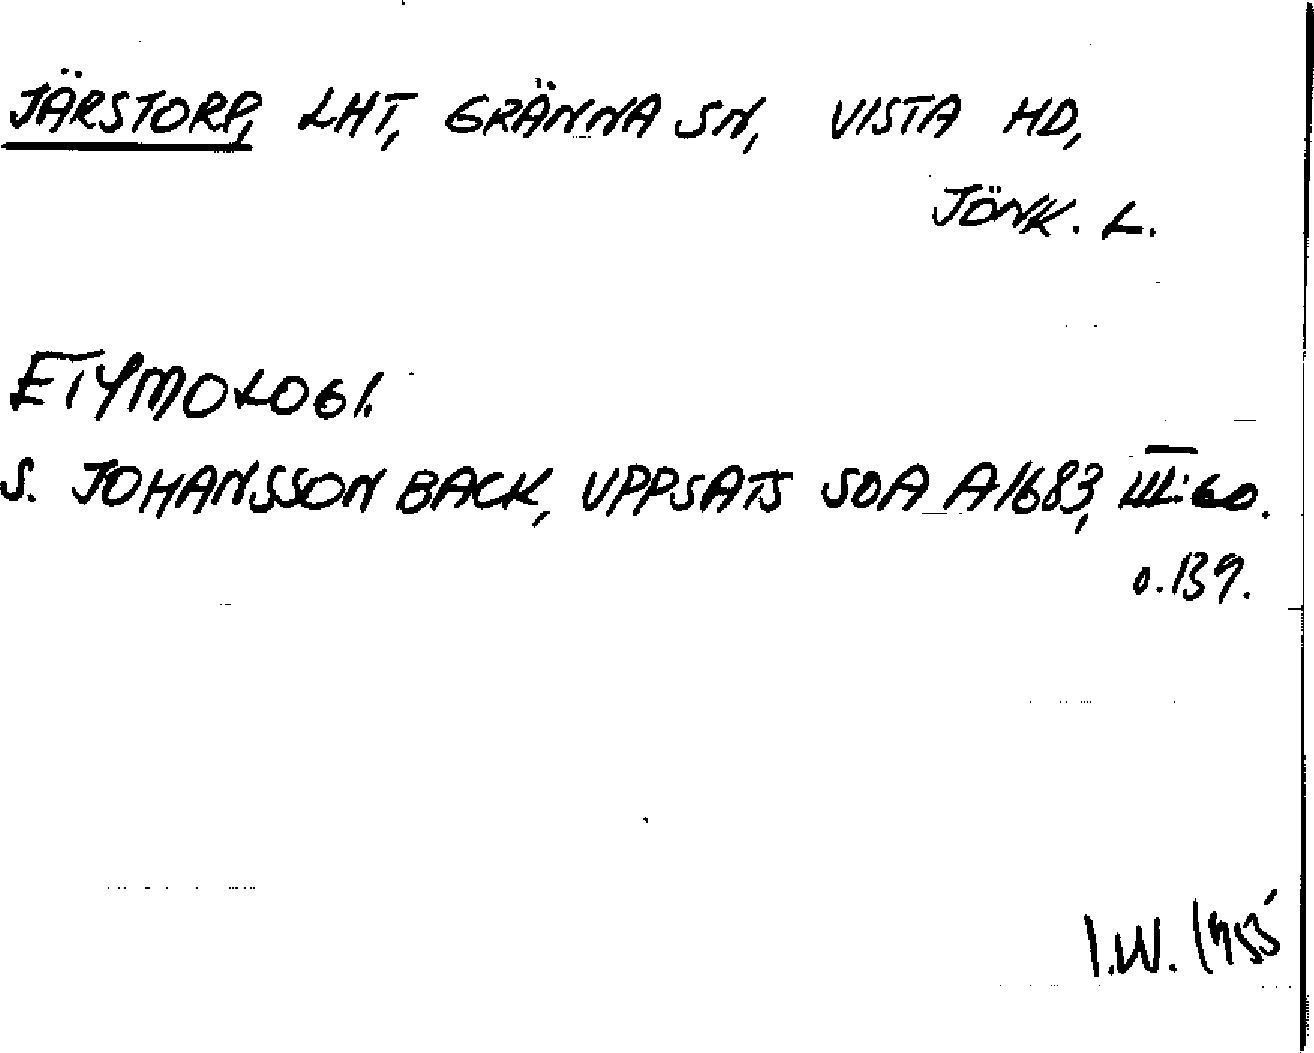 JÄRSTORP, LHT, GRÄNNA SN, VISTA HD,
JÖNK. L.
ETYMOLOGI.
S. JOHANSSON BACK, UPPSATS SOA A1683, III:60.
o. 139.
I.W. 1955